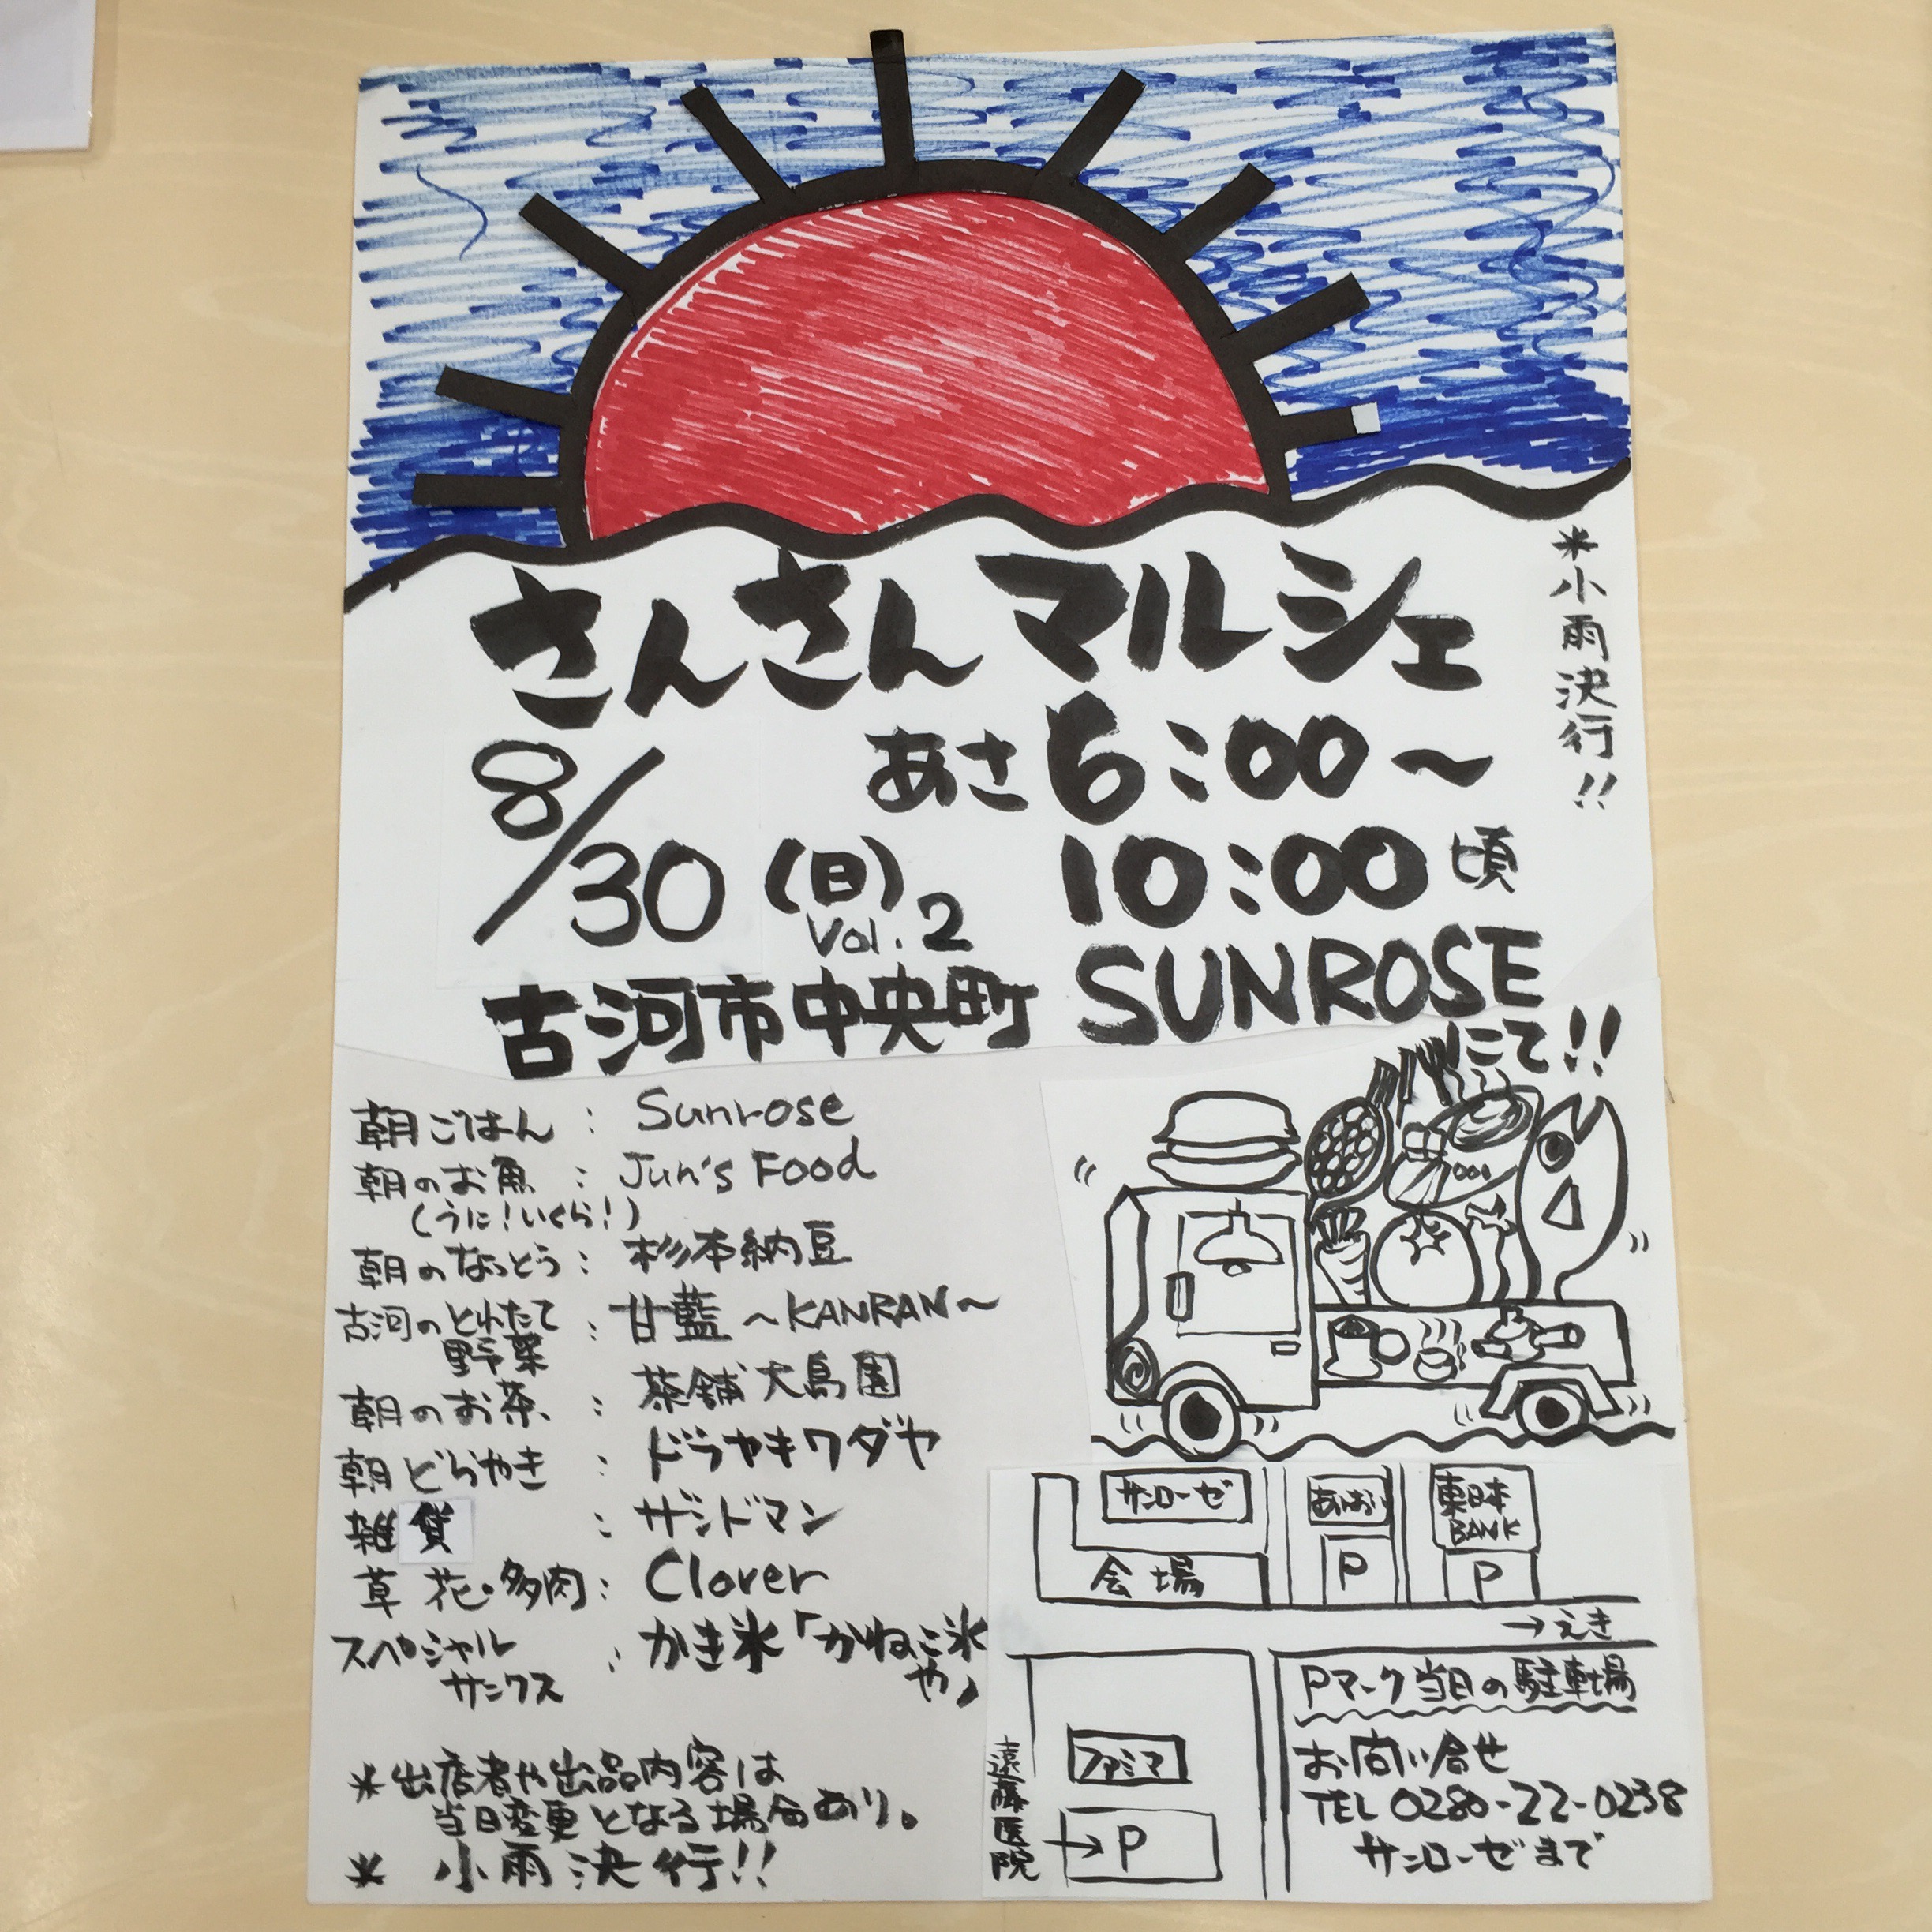 さんさんマルシェ
＊小雨決行!!
8/30(日)
Vol.2
あさ6:00〜
10:00頃
古河市中央町 SUNROSE
にて!!
朝ごはん : Sunrose
朝のお魚 : Jun's Food
(うに!いくら!)
朝のなっとう : 杉本納豆
古河のとれたて
野菜 : 甘藍 〜KANRAN〜
朝のお茶 : 茶舗大島園
朝どらやき : ドラヤキワダヤ
雑貨 : ザシドマン
草花・多肉 : Clover
スペシャル
サンクス : かき氷「かねこ氷
や」
＊出店者や出品内容は
当日変更となる場合あり。
＊ 小雨決行!!
サンローゼ
会場
あおい
P
東日本
BANK
P
→えき
ファミマ
→P
遠藤医院
Pマーク当日の駐車場
お問い合せ
TEL 0280-22-0238
サンローゼまで